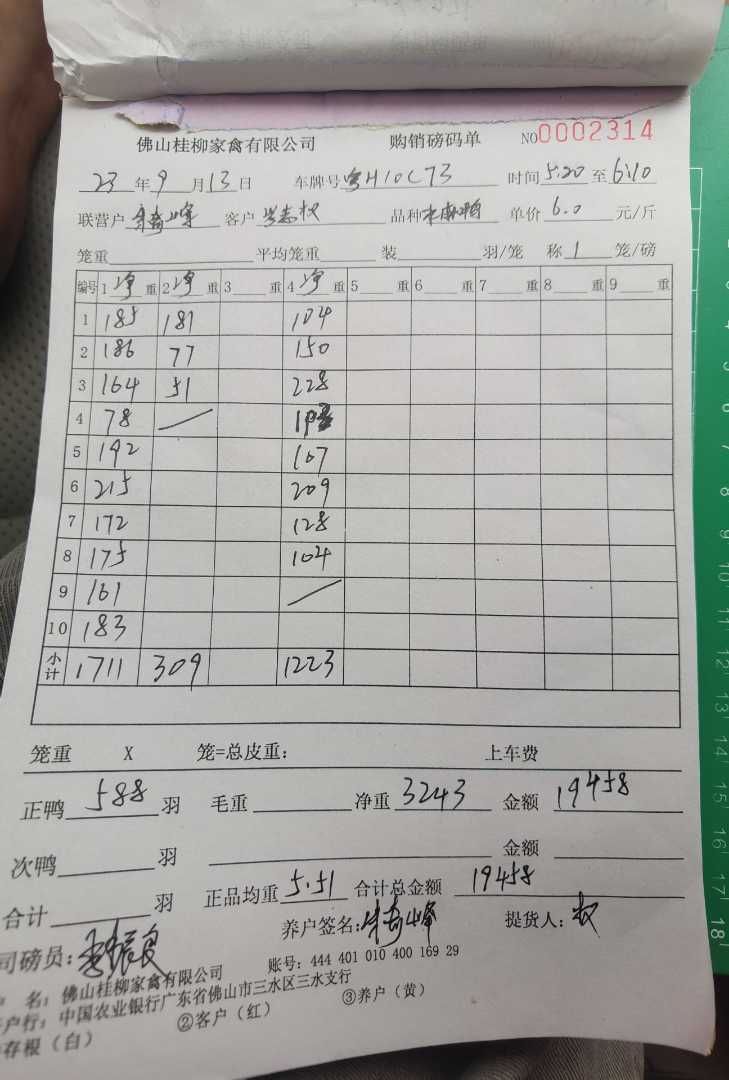 佛山桂柳家禽有限公司 购销磅码单 NO0002314
23年9月13日 车牌号 H10C73 时间5:20至6:10
联营户 客户 志权 品种 单价6.0元/斤
笼重 平均笼重 装 羽/笼 称1笼/磅
编号 1净重 2净重 3重 4净重 5重 6重 7重 8重 9重
1 185 181 104
2 186 77 150
3 164 51 228
4 78 /
5 192 107
6 215 209
7 172 128
8 175 104
9 161 /
10 183
小计 1711 309 1223
笼重 X 笼=总皮重: 上车费
正鸭588羽 毛重 净重3243 金额19458
次鸭 羽 金额
合计 羽 正品均重5.51 合计总金额19458
养户签名: 峰 提货人:权
司磅员:
名: 佛山桂柳家禽有限公司 账号: 444 401 010 400 169 29
户行: 中国农业银行广东省佛山市三水区三水支行
存根(白) ②客户(红) ③养户(黄)